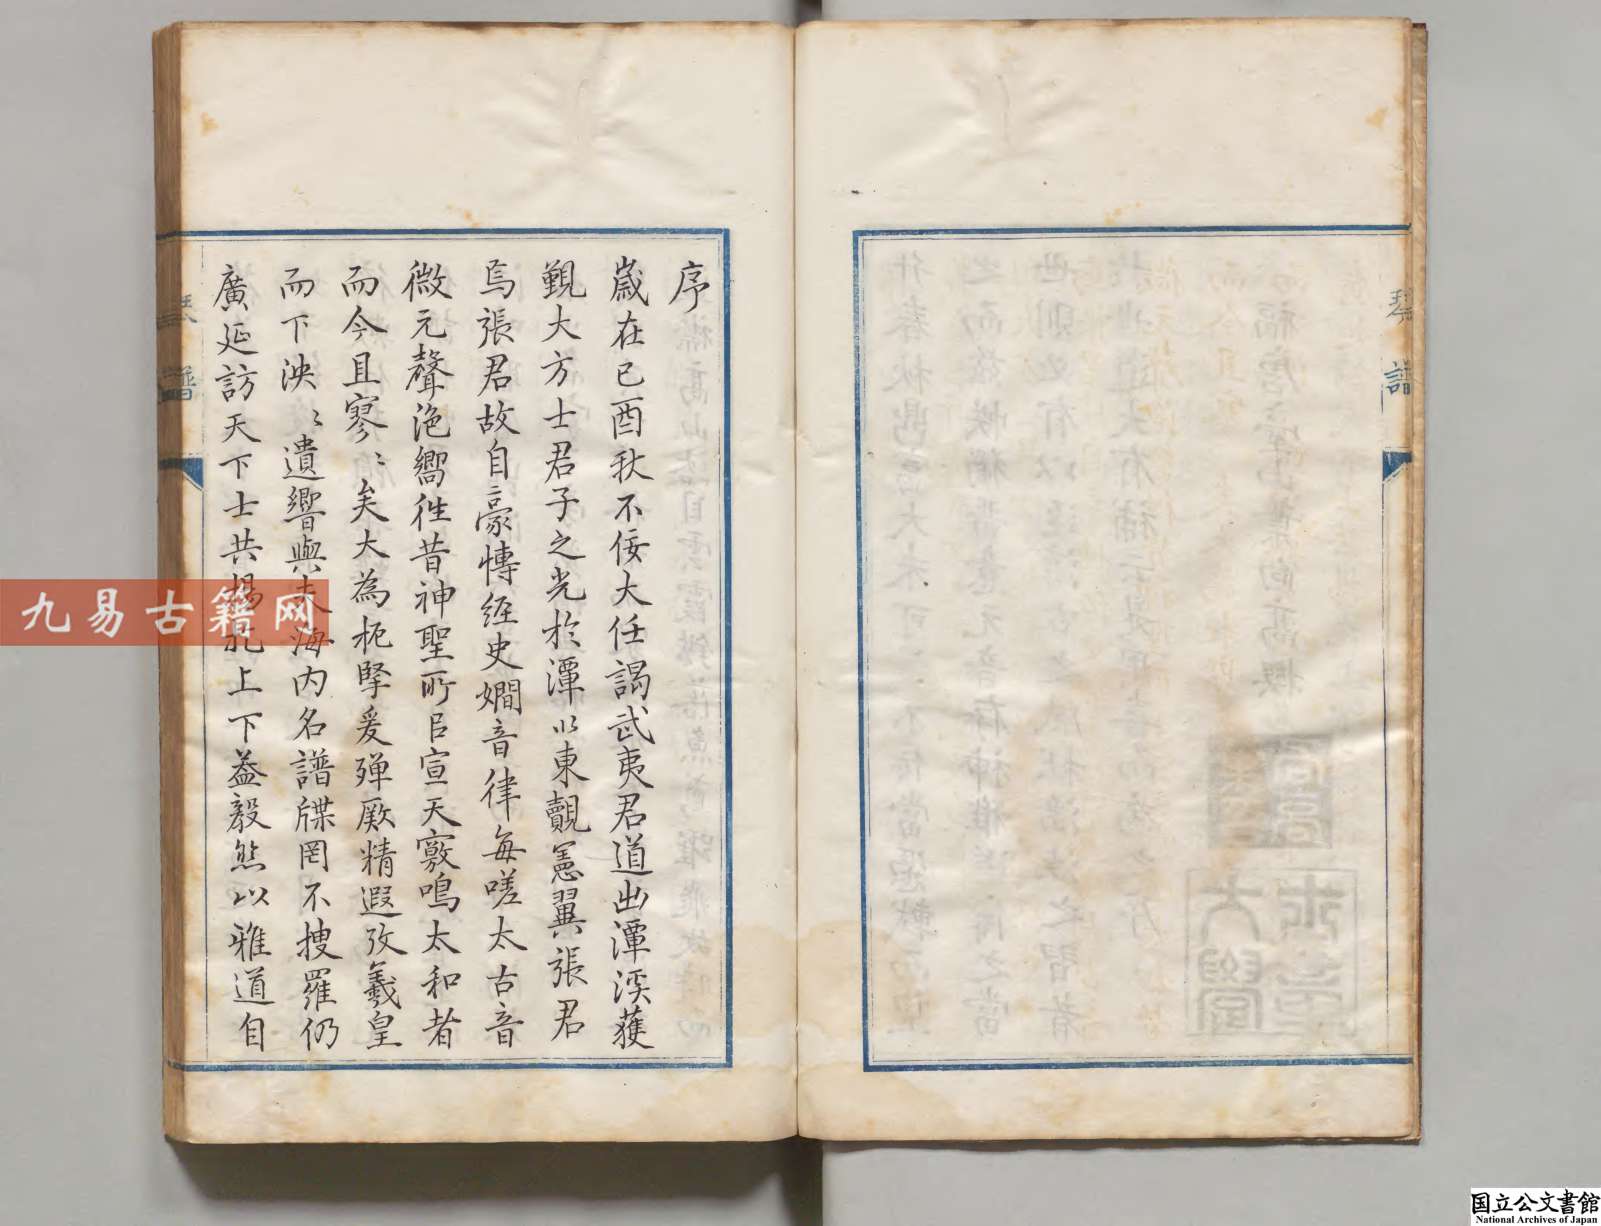 序
歲在已酉秋不佞大任謁武夷君道出潭溪獲
覲大方士君子之光於潭以東覿憲翼張君
焉張君故自豪慱經史嫺音律每嗟太古音
微元聲滟嚮徃昔神聖所㠯宣天竅鳴太和者
而今且寥〻矣大為扼堅爰殫厥精遐攷羲皇
而下泱〻遺響與夫海内名譜牒罔不捜羅仍
廣延訪天下士共揚扢上下葢毅然以雅道自
琴譜
琴譜
九易古籍网
国立公文書館
National Archives of Japan